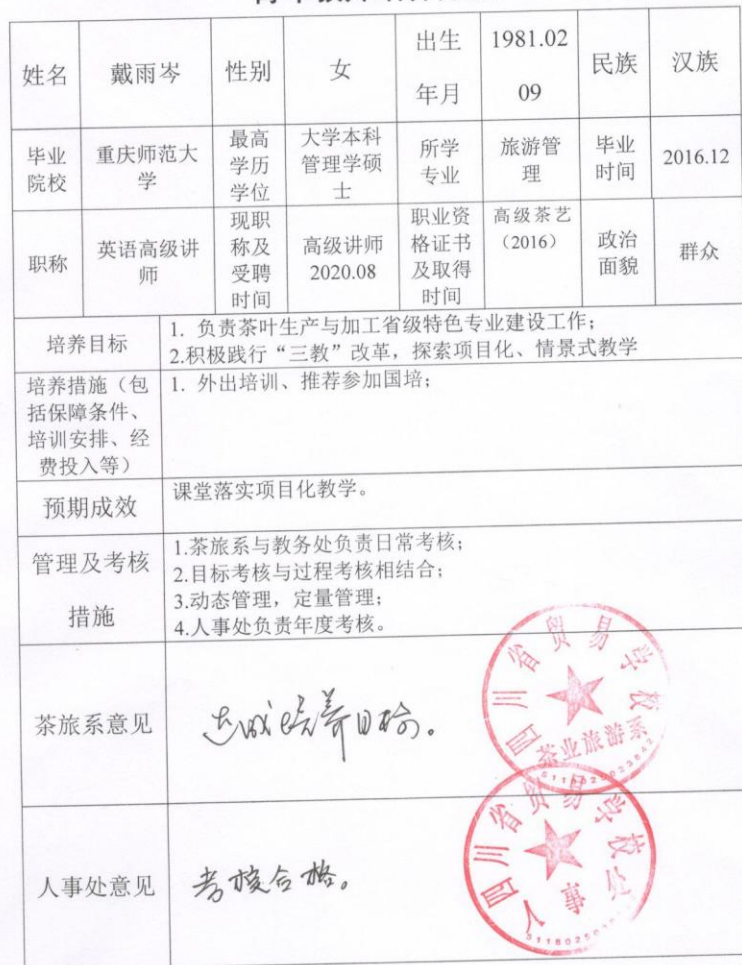 姓名 戴雨岑 性别 女 出生年月 1981.0209 民族 汉族
毕业院校 重庆师范大学 最高学历学位 大学本科管理学硕士 所学专业 旅游管理 毕业时间 2016.12
职称 英语高级讲师 现职称及受聘时间 高级讲师2020.08 职业资格证书及取得时间 高级茶艺（2016） 政治面貌 群众
培养目标
1. 负责茶叶生产与加工省级特色专业建设工作；
2.积极践行“三教”改革，探索项目化、情景式教学
培养措施（包
括保障条件、
培训安排、经
费投入等）
1. 外出培训、推荐参加国培；
预期成效
课堂落实项目化教学。
管理及考核
措施
1.茶旅系与教务处负责日常考核；
2.目标考核与过程考核相结合；
3.动态管理，定量管理；
4.人事处负责年度考核。
茶旅系意见
达成培养目标。
四川省贸易学校
茶业旅游系
人事处意见
考核合格。
四川省贸易学校
人事处